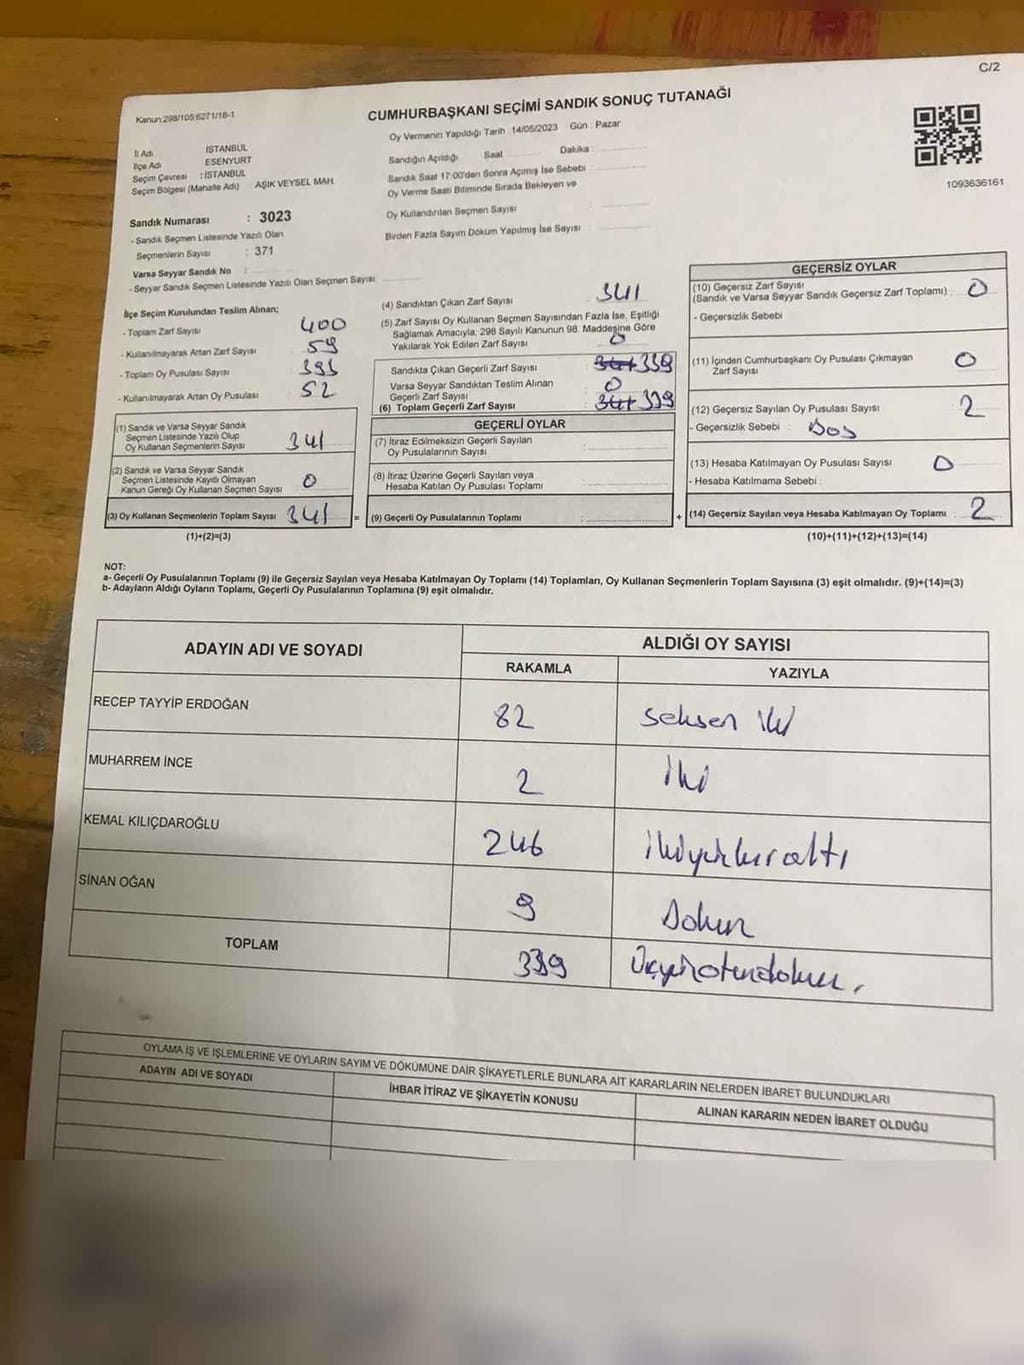 C/2
Kanun;298/105;6271/16-1
CUMHURBAŞKANI SEÇİMİ SANDIK SONUÇ TUTANAĞI
Oy Vermenin Yapıldığı Tarih 14/05/2023 Gün : Pazar
İl Adı İSTANBUL
İlçe Adı ESENYURT
Seçim Çevresi : İSTANBUL
Seçim Bölgesi (Mahalle Adı) AŞIK VEYSEL MAH.
Sandığın Açıldığı Saat Dakika :
Sandık Saat 17:00'den Sonra Açımış İse Sebebi :
Oy Verme Saati Bitiminde Sırada Bekleyen ve
Oy Kullandırılan Seçmen Sayısı :
Birden Fazla Sayım Döküm Yapılmış İse Sayısı :
1093636161
Sandık Numarası : 3023
- Sandık Seçmen Listesinde Yazılı Olan
Seçmenlerin Sayısı : 371
Varsa Seyyar Sandık No :
- Seyyar Sandık Seçmen Listesinde Yazılı Olan Seçmen Sayısı :
İlçe Seçim Kurulundan Teslim Alınan;
- Toplam Zarf Sayısı 400
- Kullanılmayarak Artan Zarf Sayısı 59
- Toplam Oy Pusulası Sayısı 393
- Kullanılmayarak Artan Oy Pusulası 52
(1) Sandık ve Varsa Seyyar Sandık
Seçmen Listesinde Yazılı Olup
Oy Kullanan Seçmenlerin Sayısı 341
(2) Sandık ve Varsa Seyyar Sandık
Seçmen Listesinde Kayıtlı Olmayan
Kanun Gereği Oy Kullanan Seçmen Sayısı 0
(3) Oy Kullanan Seçmenlerin Toplam Sayısı 341
(1)+(2)=(3)
(4) Sandıktan Çıkan Zarf Sayısı : 341
(5) Zarf Sayısı Oy Kullanan Seçmen Sayısından Fazla İse, Eşitliği
Sağlamak Amacıyla, 298 Sayılı Kanunun 98. Maddesine Göre
Yakılarak Yok Edilen Zarf Sayısı : 0
Sandıkta Çıkan Geçerli Zarf Sayısı : 341 339
Varsa Seyyar Sandıktan Teslim Alınan
Geçerli Zarf Sayısı : 0
(6) Toplam Geçerli Zarf Sayısı : 341 339
GEÇERLİ OYLAR
(7) İtiraz Edilmeksizin Geçerli Sayılan
Oy Pusulalarının Sayısı :
(8) İtiraz Üzerine Geçerli Sayılan veya
Hesaba Katılan Oy Pusulası Toplamı :
= (9) Geçerli Oy Pusulalarının Toplamı :
GEÇERSİZ OYLAR
(10) Geçersiz Zarf Sayısı
(Sandık ve Varsa Seyyar Sandık Geçersiz Zarf Toplamı) : 0
- Geçersizlik Sebebi
(11) İçinden Cumhurbaşkanı Oy Pusulası Çıkmayan
Zarf Sayısı 0
(12) Geçersiz Sayılan Oy Pusulası Sayısı 2
- Geçersizlik Sebebi : Boş
(13) Hesaba Katılmayan Oy Pusulası Sayısı 0
- Hesaba Katılmama Sebebi :
+ (14) Geçersiz Sayılan veya Hesaba Katılmayan Oy Toplamı : 2
(10)+(11)+(12)+(13)=(14)
NOT:
a- Geçerli Oy Pusulalarının Toplamı (9) ile Geçersiz Sayılan veya Hesaba Katılmayan Oy Toplamı (14) Toplamları, Oy Kullanan Seçmenlerin Toplam Sayısına (3) eşit olmalıdır. (9)+(14)=(3)
b- Adayların Aldığı Oyların Toplamı, Geçerli Oy Pusulalarının Toplamına (9) eşit olmalıdır.
ADAYIN ADI VE SOYADI
ALDIĞI OY SAYISI
RAKAMLA YAZIYLA
RECEP TAYYİP ERDOĞAN 82 seksen iki
MUHARREM İNCE 2 iki
KEMAL KILIÇDAROĞLU 246 ikiyüzkırkaltı
SİNAN OĞAN 9 Dokuz
TOPLAM 339 Üçyüzotuzdokuz.
OYLAMA İŞ VE İŞLEMLERİNE VE OYLARIN SAYIM VE DÖKÜMÜNE DAİR ŞİKAYETLERLE BUNLARA AİT KARARLARIN NELERDEN İBARET BULUNDUKLARI
ADAYIN ADI VE SOYADI İHBAR İTİRAZ VE ŞİKAYETİN KONUSU ALINAN KARARIN NEDEN İBARET OLDUĞU